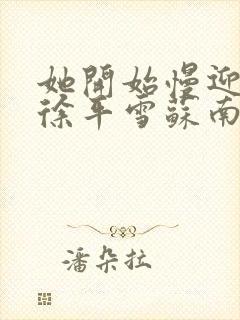 她開始慢迎
徐平雪蘇南
潘朵拉